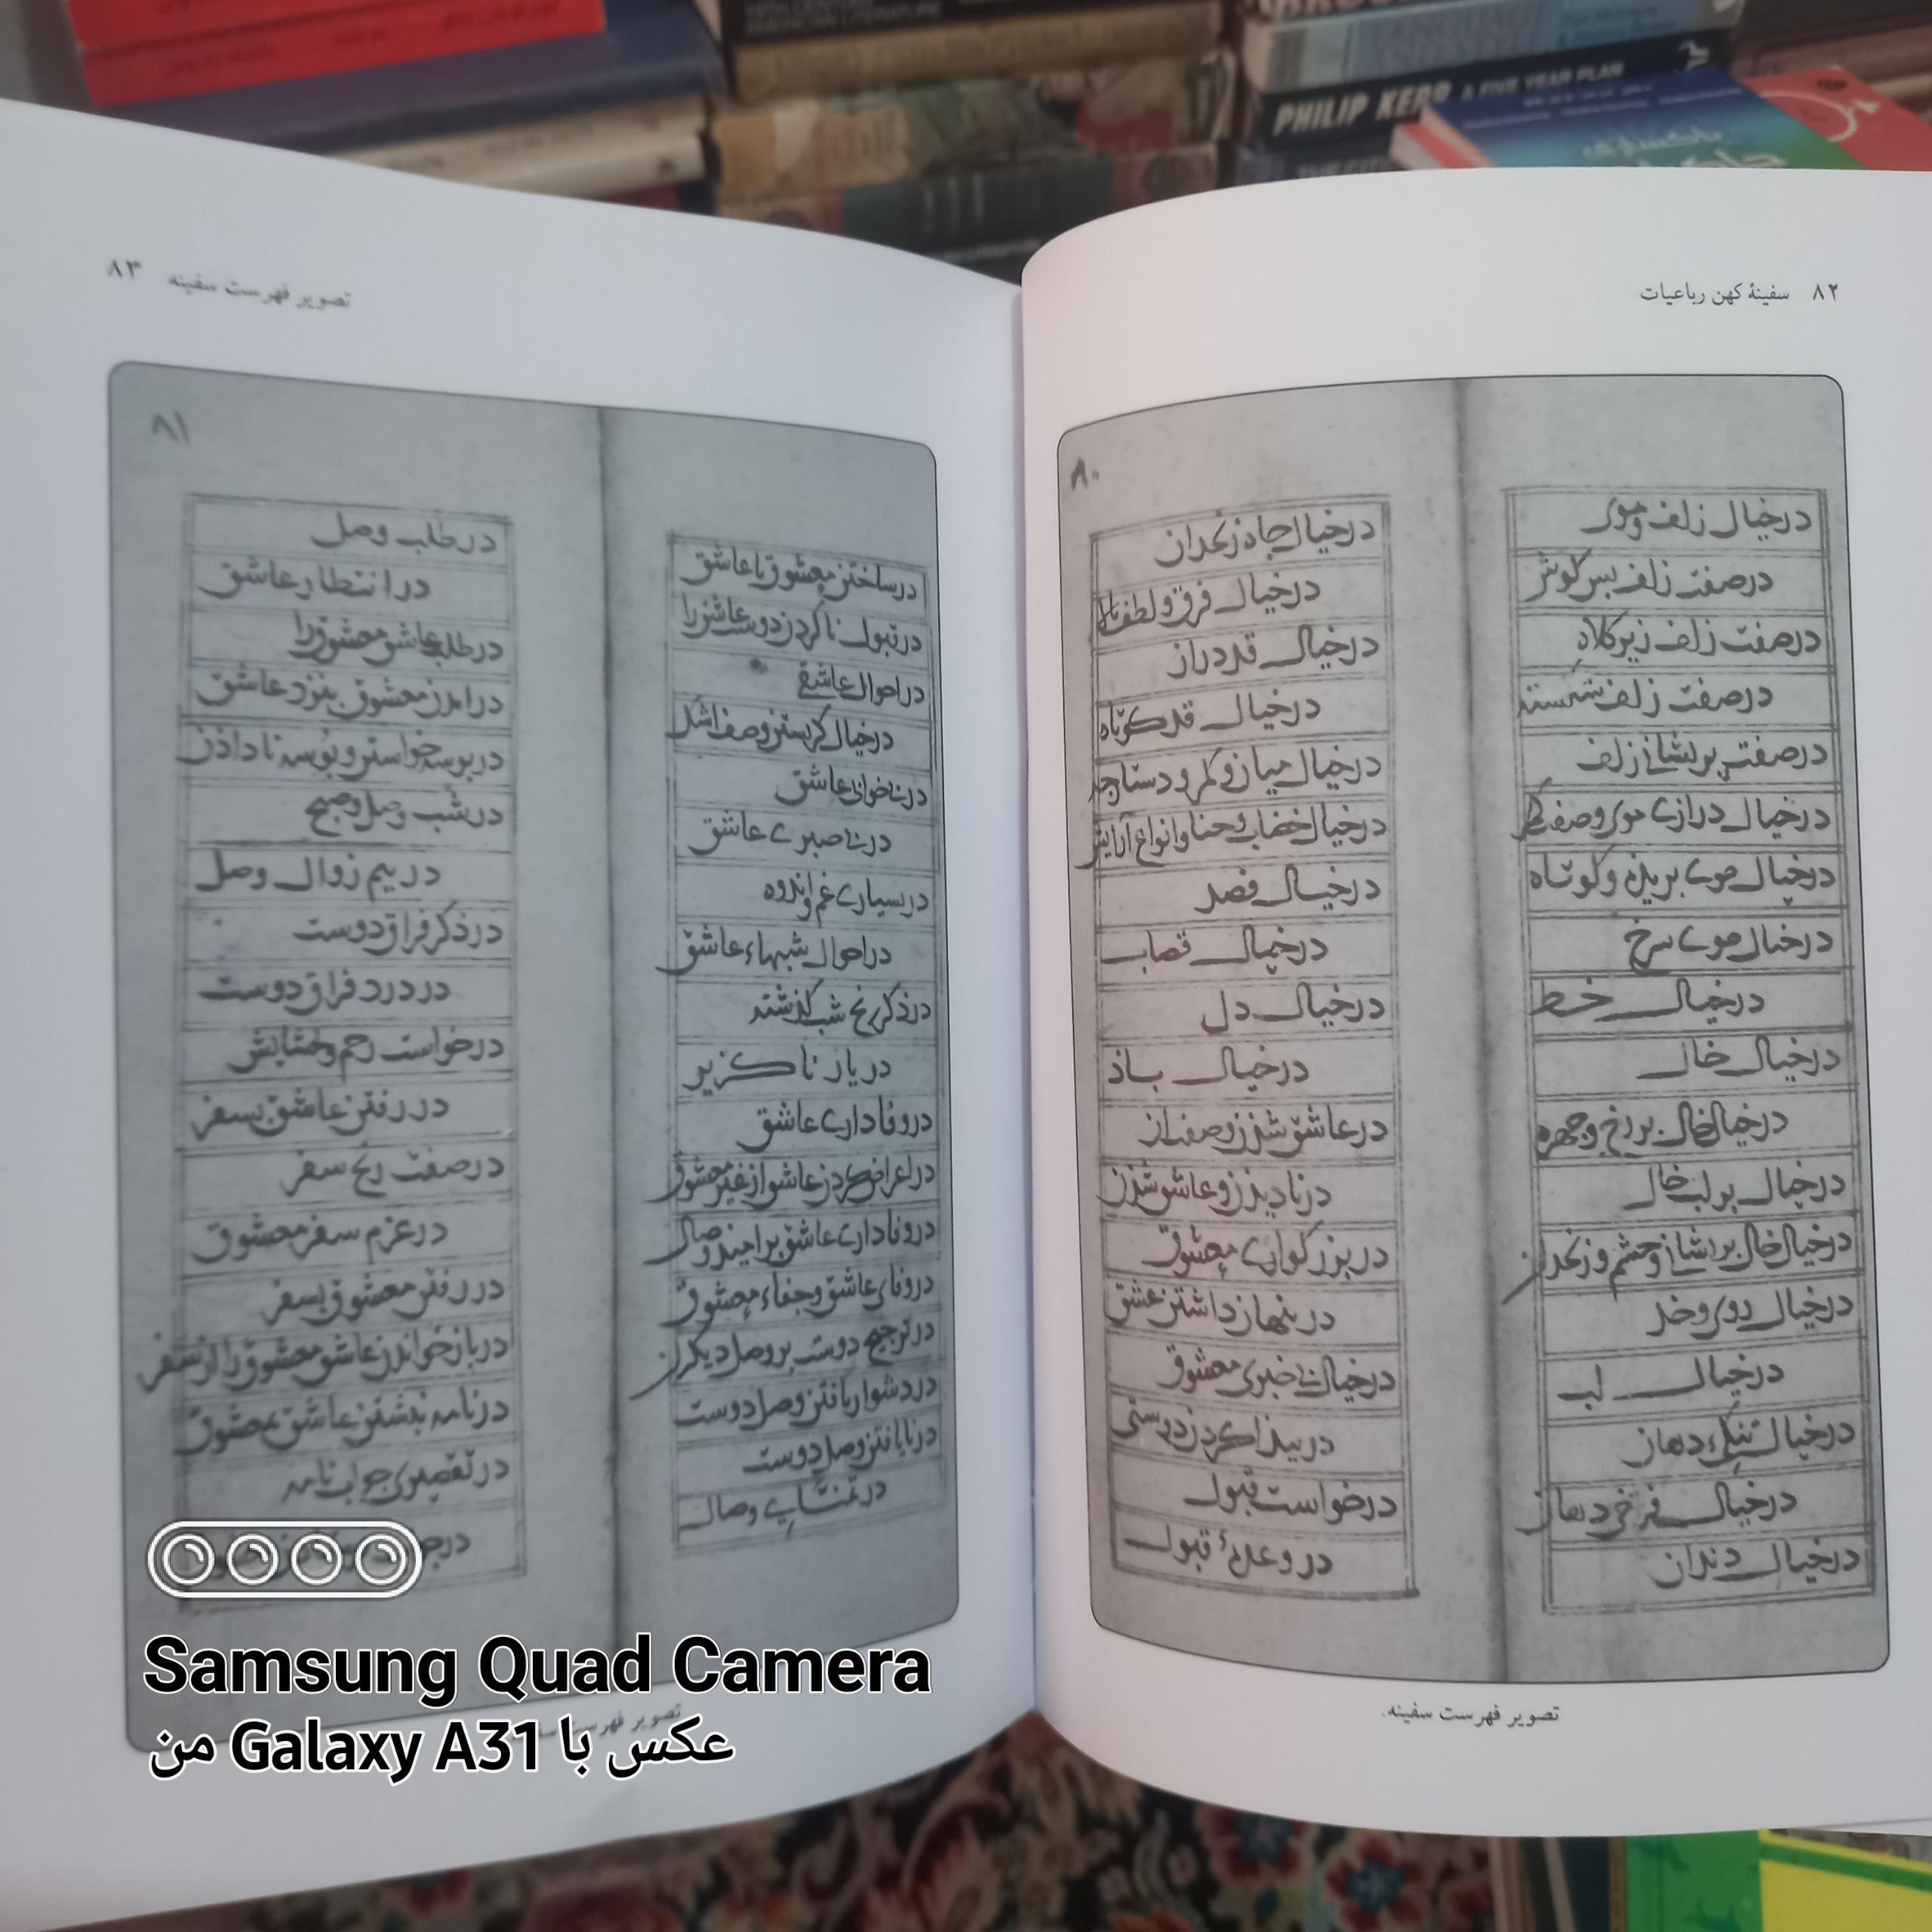 19TH CENTURY
AMERICAN LITERATURE
LANGUAGE
PHILIP KERR A FIVE YEAR PLAN
۸۲ سفینهٔ کهن رباعیات
۸۰
درخیال زلف و موی
درصفت زلف بس کوش
درصفت زلف زیرکلاه
درصفت زلف شکسته
درصفت پریشانی زلف
درخیال درازی موی وصف
درخیال موی بریده و کوتاه
درخیال موی سرخ
درخیال خط
درخیال خال
درخیال خال بر رخ و چهره
درخیال بر لب خال
درخیال خال بر و چشم و زنخدان
درخیال روی و خد
درخیال لب
درخیال تنکی دهان
درخیال فرخی دهان
درخیال دندان
درخیال چاه زنخدان
درخیال فرق و لطف
درخیال قد دراز
درخیال قد کوتاه
درخیال میان و کمر و
درخیال خضاب و حنا و انواع آرایش
درخیال فصد
درخیال قصاب
درخیال دل
درخیال باذ
درعاشق شذن و صفت ان
درنادیذن و عاشق شذن
در بزرکواری معشوق
در پنهان داشتن عشق
درخیال بی خبری معشوق
در پیدا کردن دوستی
درخواست قبول
در وعدهٔ قبول
تصویر فهرست سفینه.
تصویر فهرست سفینه ۸۳
۸۱
درساختن معشوق با عاشق
درقبول ناکردن دوست عاشق را
در احوال عاشق
درخیال کریستن و صف اشک
دربی خوابی عاشق
دربی صبری عاشق
دربسیاری غم و اندوه
در احوال شبهاء عاشق
درذکر رنج شب کذشته
در یار ناکزیر
دروفاداری عاشق
در اعراض کردن عاشق از غیر معشوق
دروفاداری عاشق بر امید وصال
دروفای عاشق و جفاء معشوق
درترجیح دوست بر وصل دیکران
در دشوار یافتن وصل دوست
درنایافتن وصل دوست
در تمنای وصال
در طلب وصل
در انتظار عاشق
درطلب عاشق معشوق را
در امدن معشوق بنزد عاشق
دربوسه خواستن و بوسه ناداذن
درشب وصل و صبح
در بیم زوال وصل
درذکر فراق دوست
در درد فراق دوست
درخواست رحم و بخشایش
در رفتن عاشق بسفر
درصفت رنج سفر
در عزم سفر معشوق
در رفتن معشوق بسفر
در بازخواندن عاشق معشوق را از سفر
درنامه نبشتن عاشق بمعشوق
درتقصیری جواب نامه
تصویر فهرست
Samsung Quad Camera
عکس با Galaxy A31 من